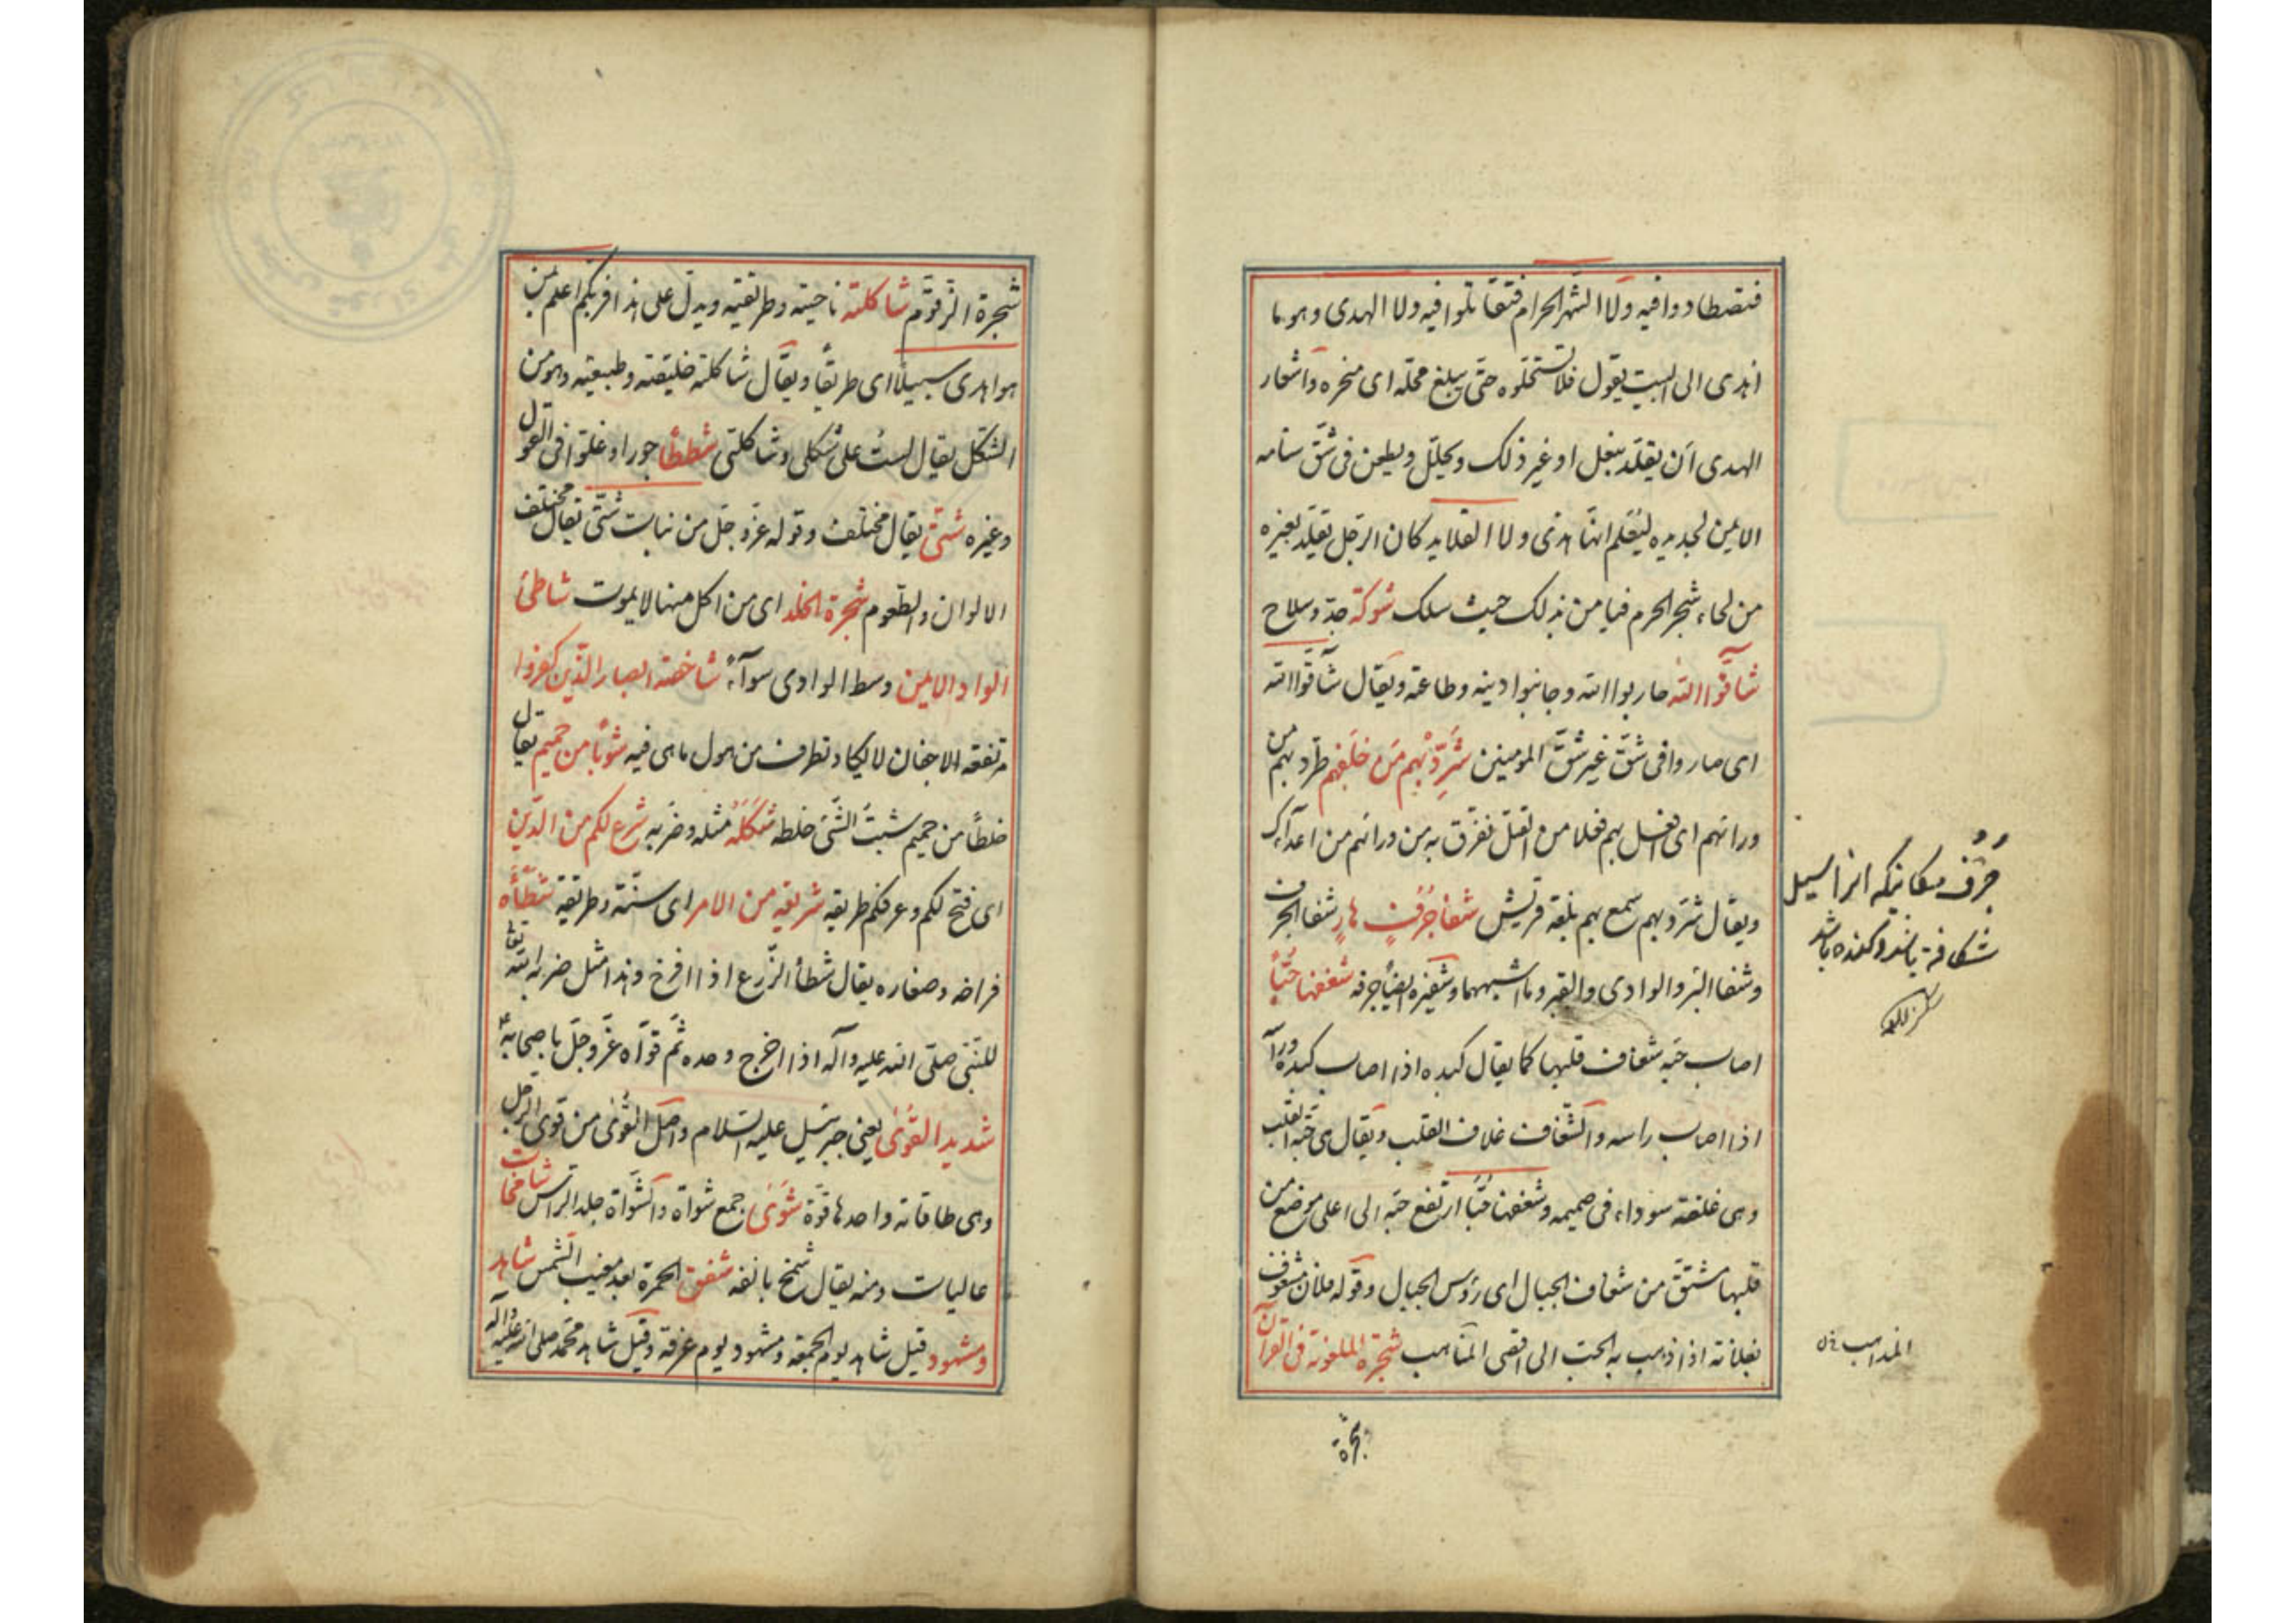 فتصطادوا فيه ولا الشهر الحرام فتقاتلوا فيه ولا الهدى وهو ما
اهدى الى البيت يقول فلا تستحلوه حتى يبلغ محله اى منحره واشعار
الهدى ان يقلد بنعل او غير ذلك ويجلل ويطعن فى شق سنامه
الايمن بحديده ليعلم انها هدى ولا القلايد كان الرجل يقلد بعيره
من لحاء شجر الحرم فيامن بذلك حيث سلك شوكة حد وسلاح
شاقوا الله حاربوا الله وجانبوا دينه وطاعته ويقال شاقوا الله
اى صاروا فى شق غير شق المومنين شرد بهم من خلفهم طرد بهم من
ورائهم اى افعل بهم فعلا من القتل تفرق به من ورائهم من اعدائك
ويقال شرد بهم سمع بهم بلغة قريش شفا جرف هار شفا الجرف
وشفا البئر والوادى والقبر وما اشبهها وشفيره ايضا جرفه شغفها حبا
اصاب حبه شغاف قلبها كما يقال كبده اذا اصاب كبده ورآسه
اذا اصاب راسه والشغاف غلاف القلب ويقال هى حبة القلب
وهى علقة سوداء فى صميمه وشعفها حبا ارتفع حبه الى اعلى موضع من
قلبها مشتق من شعاف الجبال اى رؤس الجبال وقوله فلان مشعوف
بفلانة اذا ذهب به الحب الى اقصى المذاهب شجرة الملعونة فى القرآن
شجرة
جرف مكانيكه انرا سيل
شكافته باشد وكنده باشد
المذاهب
شجرة الزقوم شاكلته ناحيته وطريقته ويدل على هذا فربكم اعلم بمن
هو اهدى سبيلا اى طريقا ويقال شاكلته خليقته وطبيعته وهو من
الشكل يقال لست على شكلى وشاكلتى شططا جورا وغلوا فى القول
وغيره شتى يقال مختلف وقوله عز وجل من نبات شتى يقال مختلف
الالوان والطعوم شجرة الخلد اى من اكل منها لا يموت شاطئ
الواد الايمن وسط الوادى سواء شاخصة ابصار الذين كفروا
مرتفعة الاجفان لا تكاد تطرف من هول ما هى فيه شوبا من حميم يقال
خلطا من حميم شبت الشئ خلطه شكله مثله وضربه شرع لكم من الدين
اى فتح لكم وعرفكم طريقه شريعة من الامر اى سنة وطريقة شطأه
فراخه وصغاره يقال شطأ الزرع اذا افرخ وهذا مثل ضربه الله تعا
للنبى صلى الله عليه وآله اذا اخرج وحده ثم قواه عز وجل باصحابه
شديد القوى يعنى جبرئيل عليه السلام واصل القوى من قوى الحبل
وهى طاقاته واحدها قوة شوى جمع شواة والشواة جلد الراس شامخات
عاليات ومنه يقال شمخ بانفه شفق الحمرة بعد مغيب الشمس شاهد
ومشهود قيل شاهد يوم الجمعة ومشهود يوم عرفة وقيل شاهد محمد صلى الله عليه وآله